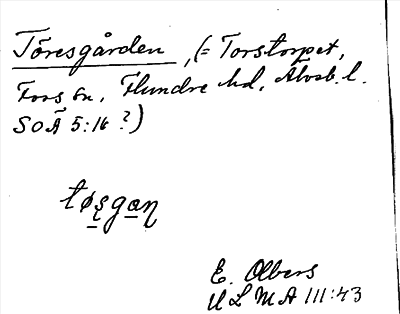 Töresgården, (= Torstorpet,
Fors sn, Flundre hd, Älvsb. l.
SOÄ 5:16 ?)
tøʂgaɳ
E. Olbers
ULMA III:43